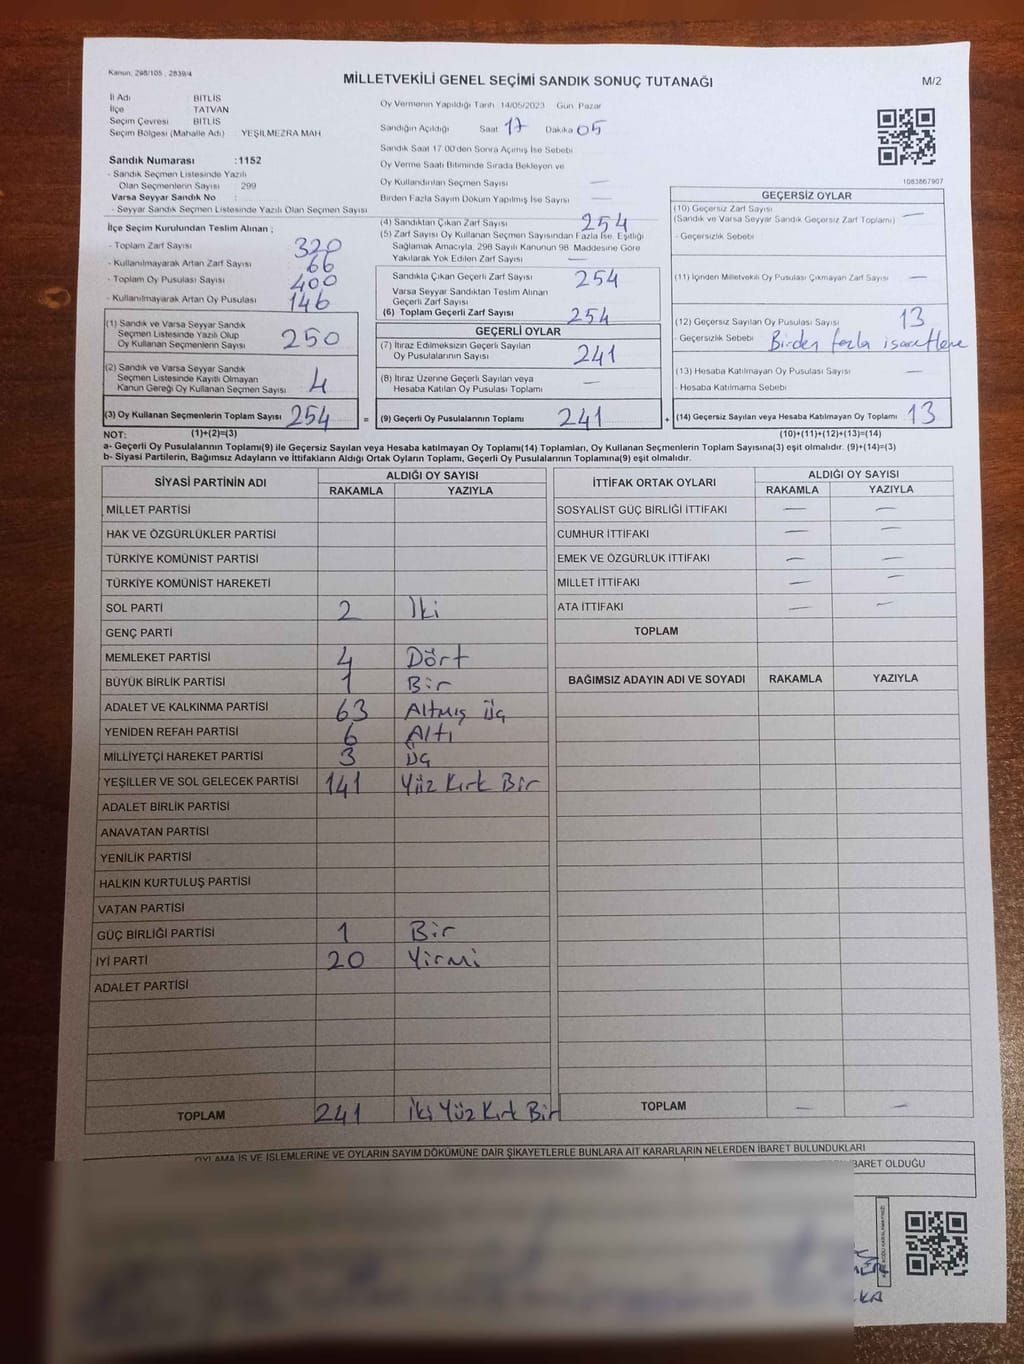 Kanun, 298/105 , 2839/4
MİLLETVEKİLİ GENEL SEÇİMİ SANDIK SONUÇ TUTANAĞI
M/2
İl Adı BİTLİS
İlçe TATVAN
Seçim Çevresi BİTLİS
Seçim Bölgesi (Mahalle Adı) YEŞİLMEZRA MAH
Sandık Numarası :1152
- Sandık Seçmen Listesinde Yazılı
Olan Seçmenlerin Sayısı : 299
Varsa Seyyar Sandık No :
- Seyyar Sandık Seçmen Listesinde Yazılı Olan Seçmen Sayısı
Oy Vermenin Yapıldığı Tarih 14/05/2023 Gün Pazar
Sandığın Açıldığı Saat 17 Dakika 05
Sandık Saat 17 00'den Sonra Açımış İse Sebebi
Oy Verme Saati Bitiminde Sırada Bekleyen ve
Oy Kullandırılan Seçmen Sayısı —
Birden Fazla Sayım Döküm Yapılmış İse Sayısı —
1083867907
İlçe Seçim Kurulundan Teslim Alınan ;
- Toplam Zarf Sayısı 320
- Kullanılmayarak Artan Zarf Sayısı 66
- Toplam Oy Pusulası 400
- Kullanılmayarak Artan Oy Pusulası 146
(1) Sandık ve Varsa Seyyar Sandık
Seçmen Listesinde Yazılı Olup
Oy Kullanan Seçmenlerin Sayısı 250
(2) Sandık ve Varsa Seyyar Sandık
Seçmen Listesinde Kayıtlı Olmayan
Kanun Gereği Oy Kullanan Seçmen Sayısı 4
(3) Oy Kullanan Seçmenlerin Toplam Sayısı 254 =
(4) Sandıktan Çıkan Zarf Sayısı 254
(5) Zarf Sayısı Oy Kullanan Seçmen Sayısından Fazla İse, Eşitliği
Sağlamak Amacıyla, 298 Sayılı Kanunun 98 Maddesine Göre
Yakılarak Yok Edilen Zarf Sayısı —
Sandıkta Çıkan Geçerli Zarf Sayısı 254
Varsa Seyyar Sandıktan Teslim Alınan
Geçerli Zarf Sayısı
(6) Toplam Geçerli Zarf Sayısı 254
GEÇERLİ OYLAR
(7) İtiraz Edilmeksizin Geçerli Sayılan
Oy Pusulalarının Sayısı 241
(8) İtiraz Üzerine Geçerli Sayılan veya
Hesaba Katılan Oy Pusulası Toplamı —
(9) Geçerli Oy Pusulalarının Toplamı 241 +
GEÇERSİZ OYLAR
(10) Geçersiz Zarf Sayısı
(Sandık ve Varsa Seyyar Sandık Geçersiz Zarf Toplamı) —
- Geçersizlik Sebebi
(11) İçinden Milletvekili Oy Pusulası Çıkmayan Zarf Sayısı —
(12) Geçersiz Sayılan Oy Pusulası Sayısı 13
- Geçersizlik Sebebi Birden fazla isaretleme
(13) Hesaba Katılmayan Oy Pusulası Sayısı —
- Hesaba Katılmama Sebebi
(14) Geçersiz Sayılan veya Hesaba Katılmayan Oy Toplamı 13
NOT: (1)+(2)=(3) (10)+(11)+(12)+(13)=(14)
a- Geçerli Oy Pusulalarının Toplamı(9) ile Geçersiz Sayılan veya Hesaba katılmayan Oy Toplamı(14) Toplamları, Oy Kullanan Seçmenlerin Toplam Sayısına(3) eşit olmalıdır. (9)+(14)=(3)
b- Siyasi Partilerin, Bağımsız Adayların ve İttifakların Aldığı Ortak Oyların Toplamı, Geçerli Oy Pusulalarının Toplamına(9) eşit olmalıdır.
SİYASİ PARTİNİN ADI ALDIĞI OY SAYISI
RAKAMLA YAZIYLA
MİLLET PARTİSİ
HAK VE ÖZGÜRLÜKLER PARTİSİ
TÜRKİYE KOMÜNİST PARTİSİ
TÜRKİYE KOMÜNİST HAREKETİ
SOL PARTİ 2 İki
GENÇ PARTİ
MEMLEKET PARTİSİ 4 Dört
BÜYÜK BİRLİK PARTİSİ 1 Bir
ADALET VE KALKINMA PARTİSİ 63 Altmış üç
YENİDEN REFAH PARTİSİ 6 Altı
MİLLİYETÇİ HAREKET PARTİSİ 3 üç
YEŞİLLER VE SOL GELECEK PARTİSİ 141 Yüz Kırk Bir
ADALET BİRLİK PARTİSİ
ANAVATAN PARTİSİ
YENİLİK PARTİSİ
HALKIN KURTULUŞ PARTİSİ
VATAN PARTİSİ
GÜÇ BİRLİĞİ PARTİSİ 1 Bir
İYİ PARTİ 20 Yirmi
ADALET PARTİSİ
TOPLAM 241 İki Yüz Kırk Bir
İTTİFAK ORTAK OYLARI ALDIĞI OY SAYISI
RAKAMLA YAZIYLA
SOSYALİST GÜÇ BİRLİĞİ İTTİFAKI — —
CUMHUR İTTİFAKI — —
EMEK VE ÖZGÜRLÜK İTTİFAKI — —
MİLLET İTTİFAKI — —
ATA İTTİFAKI — —
TOPLAM
BAĞIMSIZ ADAYIN ADI VE SOYADI RAKAMLA YAZIYLA
TOPLAM — —
OYLAMA İŞ VE İŞLEMLERİNE VE OYLARIN SAYIM DÖKÜMÜNE DAİR ŞİKAYETLERLE BUNLARA AİT KARARLARIN NELERDEN İBARET BULUNDUKLARI
İBARET OLDUĞU